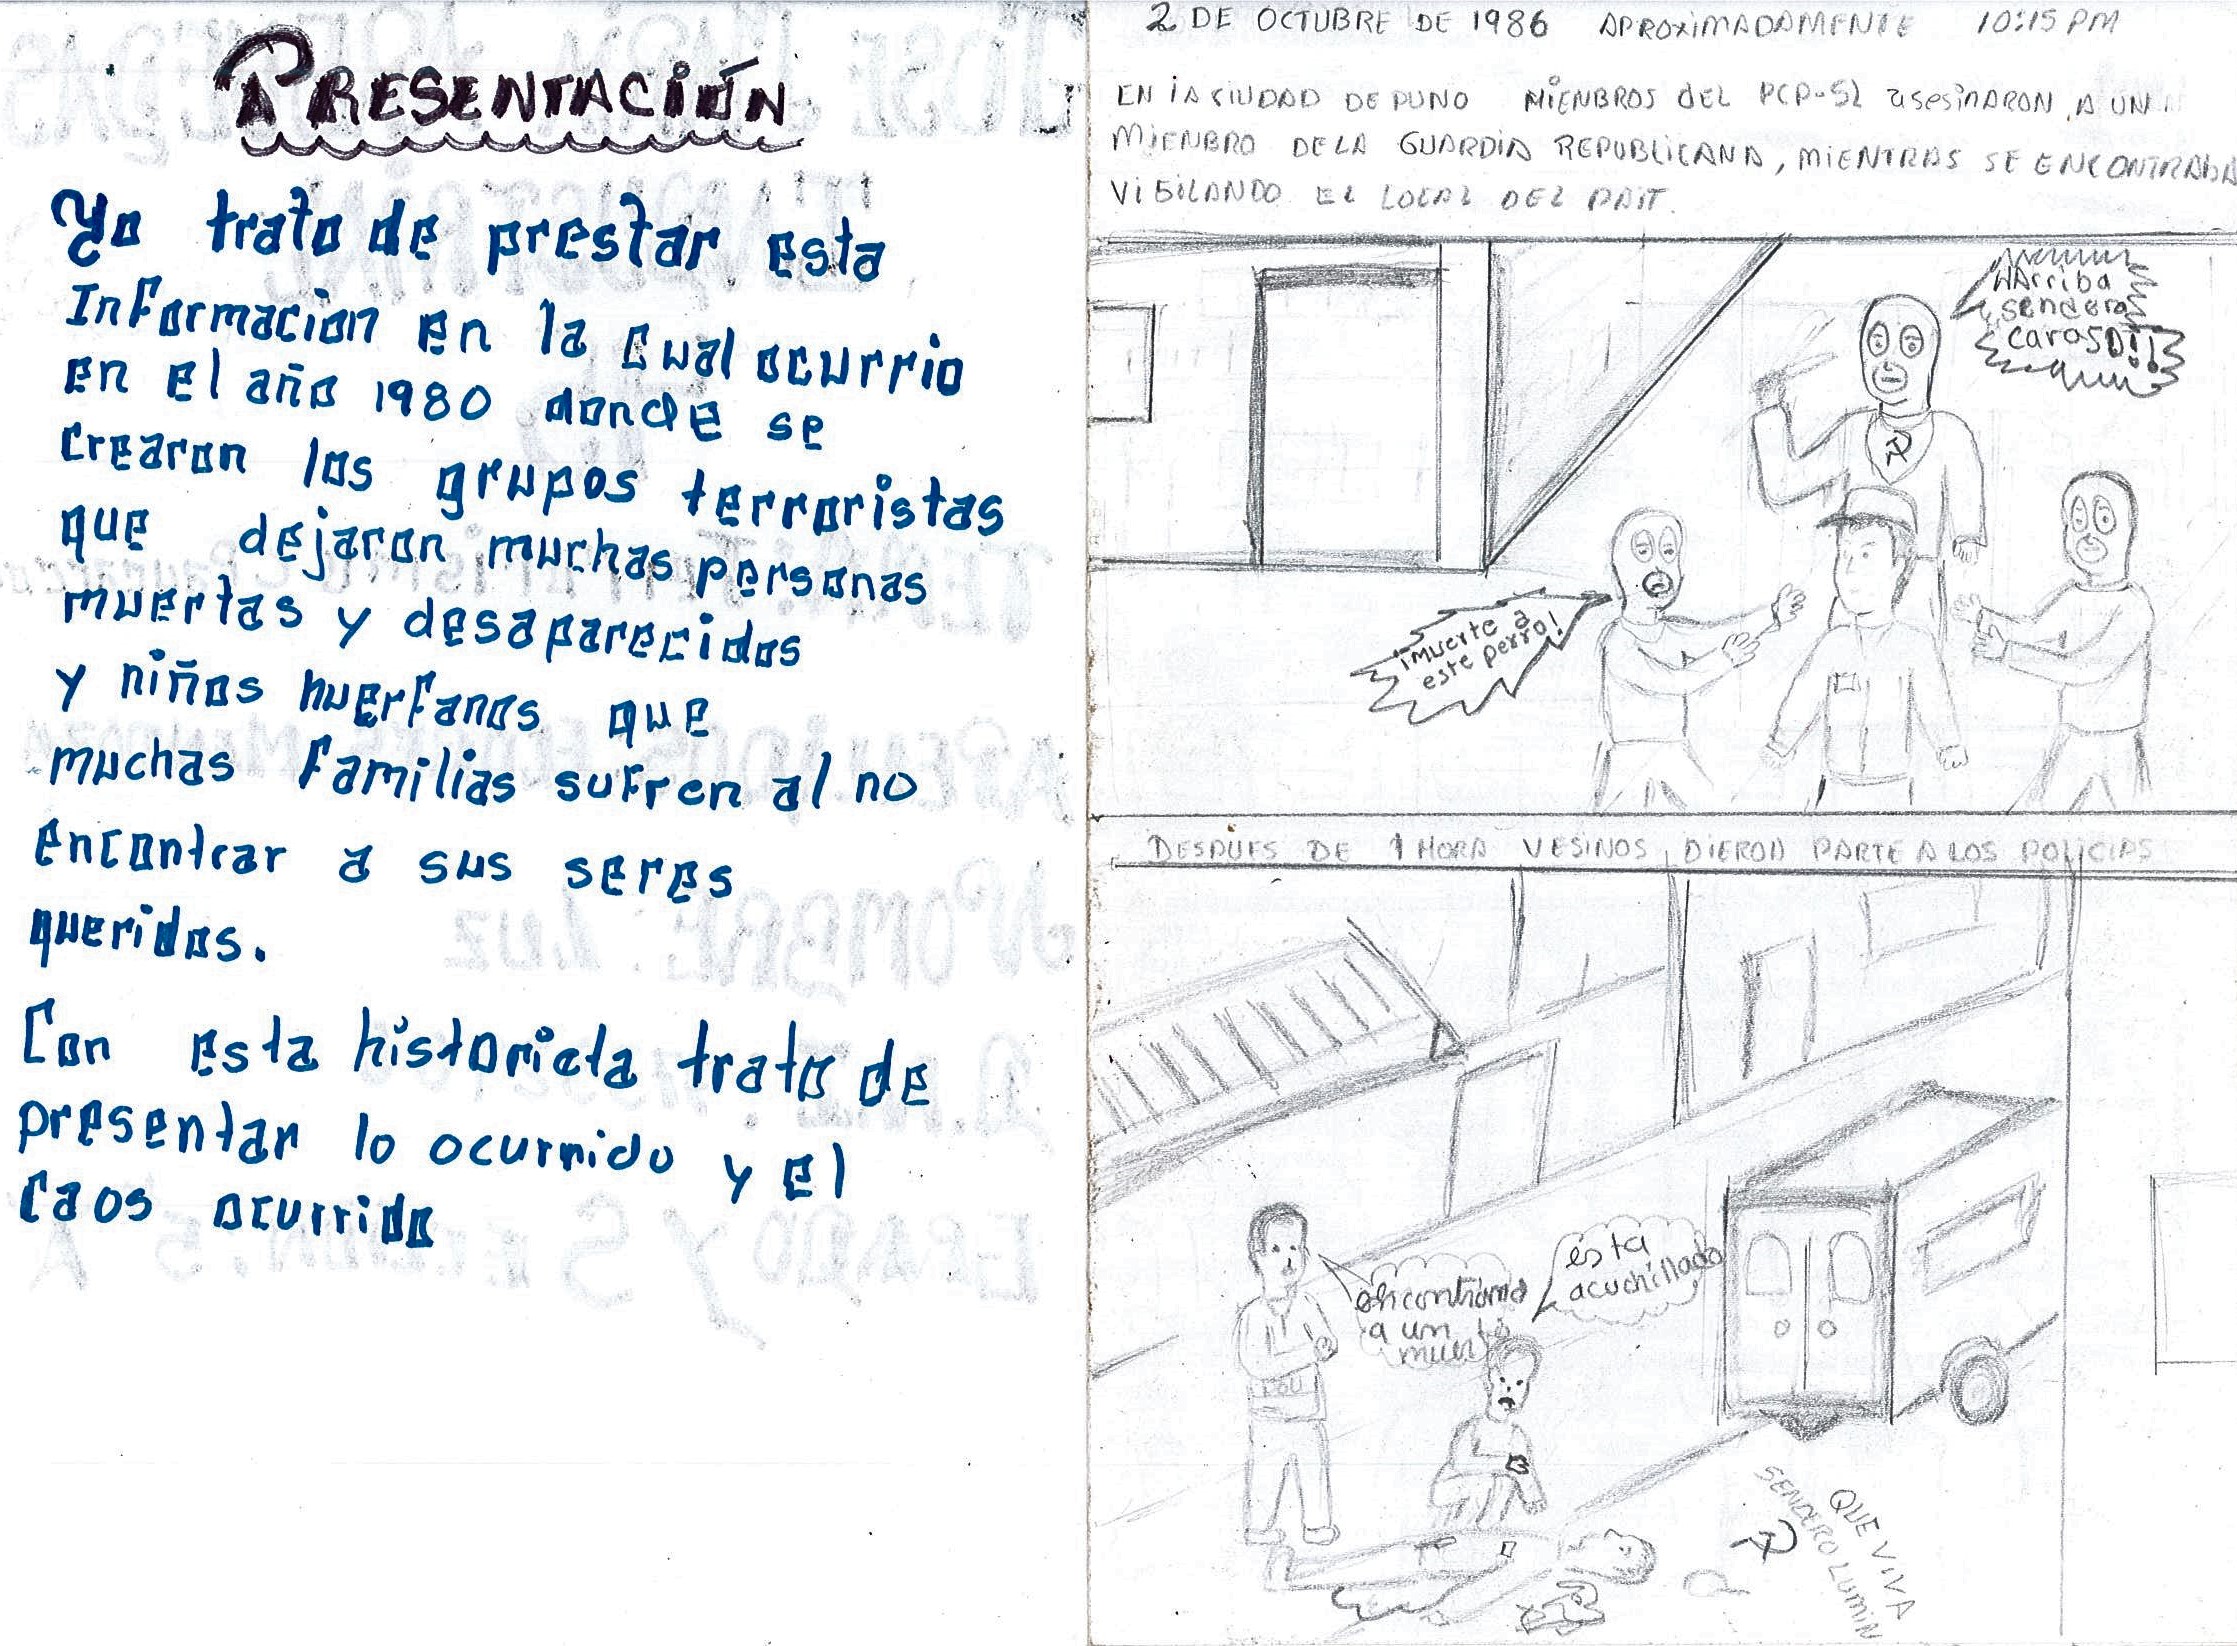 PRESENTACIÓN
Yo trato de prestar esta
Informacion en la cual ocurrio
en el año 1980 donde se
crearon los grupos terroristas
que dejaron muchas personas
muertas y desaparecidos
y niños huerfanos que
muchas familias sufren al no
encontrar a sus seres
queridos.
Con esta historieta trato de
presentar lo ocurrido y el
caos ocurrido
2 DE OCTUBRE DE 1986 APROXIMADAMENTE 10:15 PM
EN LA CIUDAD DE PUNO MIENBROS DEL PCP-SL asesinaron A UN
MIENBRO DE LA GUARDIA REPUBLICANA, MIENTRAS SE ENCONTRABA
VIGILANDO EL LOCAL DEL PAIT.
Arriba
sendero
¡Muerte a
este perro!
DESPUES DE 1 HORA VESINOS DIERON PARTE A LOS POLICIAS
encontramo
a un
muerto
esta
acuchillado
QUE VIVA
SENDERO LUMIN